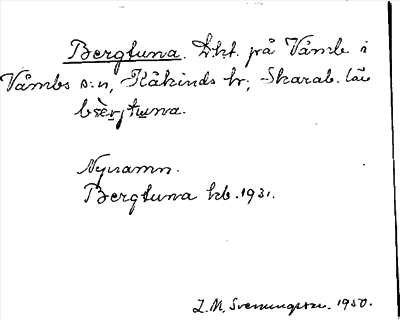 Bergtuna. Lht. på Våmb i
Våmbs s:n, Kåkinds hr; Skarab. län
bæ̀rjtuna.
Nynamn.
Bergtuna kb. 1931.
Z. M. Svenningsson. 1950.